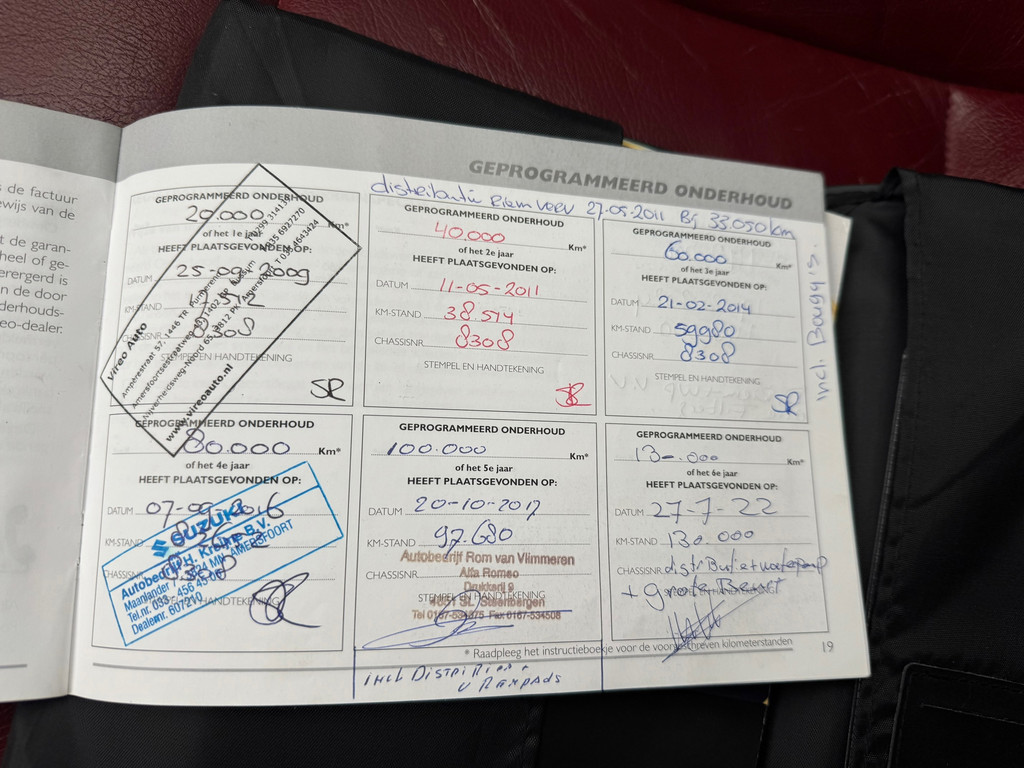 s de factuur
ewijs van de
t de garan-
heel of ge-
erergerd is
n de door
derhouds-
eo-dealer.
GEPROGRAMMEERD ONDERHOUD
distributie Riem verv 27-05-2011 Bij 33.050 km
GEPROGRAMMEERD ONDERHOUD
20.000 Km*
of het 1e jaar
HEEFT PLAATSGEVONDEN OP:
DATUM 25-09-2009
KM-STAND
CHASSISNR. 8308
STEMPEL EN HANDTEKENING
SR
Vireo Auto
Ampèrestraat 57, 1446 TR Purmerend
Amersfoortsestraatweg 1401
Nijverheidsweg-Noord 65, 3812 PK Amersfoort
www.vireoauto.nl
GEPROGRAMMEERD ONDERHOUD
40.000 Km*
of het 2e jaar
HEEFT PLAATSGEVONDEN OP:
DATUM 11-05-2011
KM-STAND 38.514
CHASSISNR. 8308
STEMPEL EN HANDTEKENING
SR
GEPROGRAMMEERD ONDERHOUD
60.000 Km*
of het 3e jaar
HEEFT PLAATSGEVONDEN OP:
DATUM 21-02-2014
KM-STAND 59980
CHASSISNR. 8308
STEMPEL EN HANDTEKENING
SR
incl. Bougy's.
GEPROGRAMMEERD ONDERHOUD
80.000 Km*
of het 4e jaar
HEEFT PLAATSGEVONDEN OP:
DATUM 07-09-2016
KM-STAND
CHASSISNR.
STEMPEL EN HANDTEKENING
SUZUKI
Autobedrijf H. Kreijne B.V.
Maanlander 7, 3824 MN AMERSFOORT
Tel.nr. 033 - 456
Dealernr. 607210
GEPROGRAMMEERD ONDERHOUD
100.000 Km*
of het 5e jaar
HEEFT PLAATSGEVONDEN OP:
DATUM 20-10-2017
KM-STAND 97.680
Autobedrijf Rom van Vlimmeren
CHASSISNR. Alfa Romeo
Drukkerij 9
STEMPEL EN HANDTEKENING
4651 SL Steenbergen
Tel 0167-534375 Fax 0167-534508
GEPROGRAMMEERD ONDERHOUD
130.000 Km*
of het 6e jaar
HEEFT PLAATSGEVONDEN OP:
DATUM 27-7-22
KM-STAND 130.000
CHASSISNR. distributie + waterpomp
+ grote Beurt
* Raadpleeg het instructieboekje voor de voorgeschreven kilometerstanden
19
INCL DISTRI RIEM +
V REMPADS